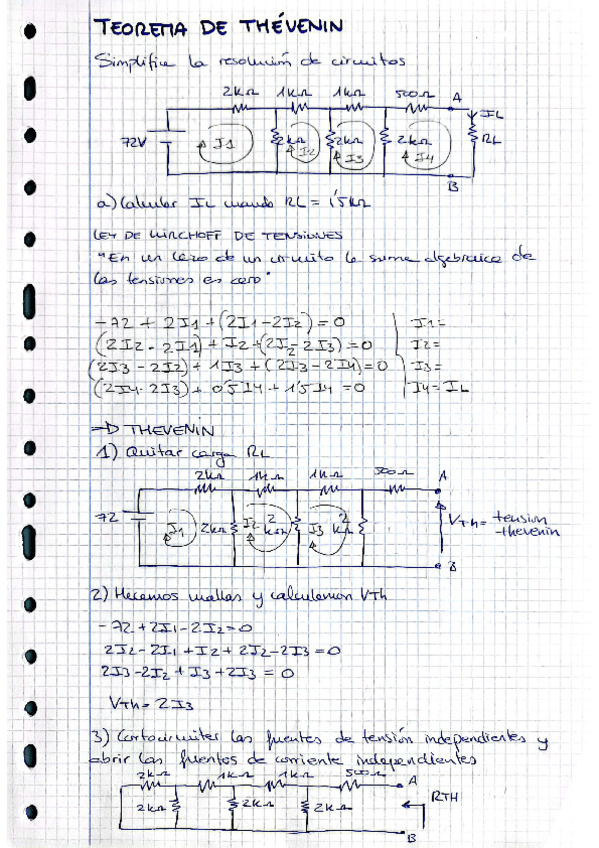 TEOREMA DE THÉVENIN
Simplifica la resolución de circuitos
2kΩ 1kΩ 1kΩ 500Ω A
IL
72V I1 2kΩ I2 2kΩ I3 2kΩ I4 RL
B
a) Calcular IL cuando RL = 1'5kΩ
LEY DE KIRCHOFF DE TENSIONES
"En un lazo de un circuito la suma algebraica de
las tensiones es cero"
-72 + 2I1 + (2I1 - 2I2) = 0 I1=
(2I2 - 2I1) + I2 + (2I2 - 2I3) = 0 I2=
(2I3 - 2I2) + 1I3 + (2I3 - 2I4) = 0 I3=
(2I4 - 2I3) + 0'5I4 + 1'5I4 = 0 I4 = IL
⇒ THEVENIN
1) Quitar carga RL
2kΩ 1kΩ 1kΩ 500Ω A
72 I1 2kΩ I2 2kΩ I3 2kΩ VTh = tension
thevenin
B
2) Hacemos mallas y calculamos VTh
-72+2I1-2I2=0
2I2-2I1+I2+2I2-2I3=0
2I3-2I2+I3+2I3=0
VTh=2I3
3) Cortocircuitar las fuentes de tensión independientes y
abrir las fuentes de corriente independientes
2kΩ 1kΩ 1kΩ 500Ω A
2kΩ 2kΩ 2kΩ RTH
B